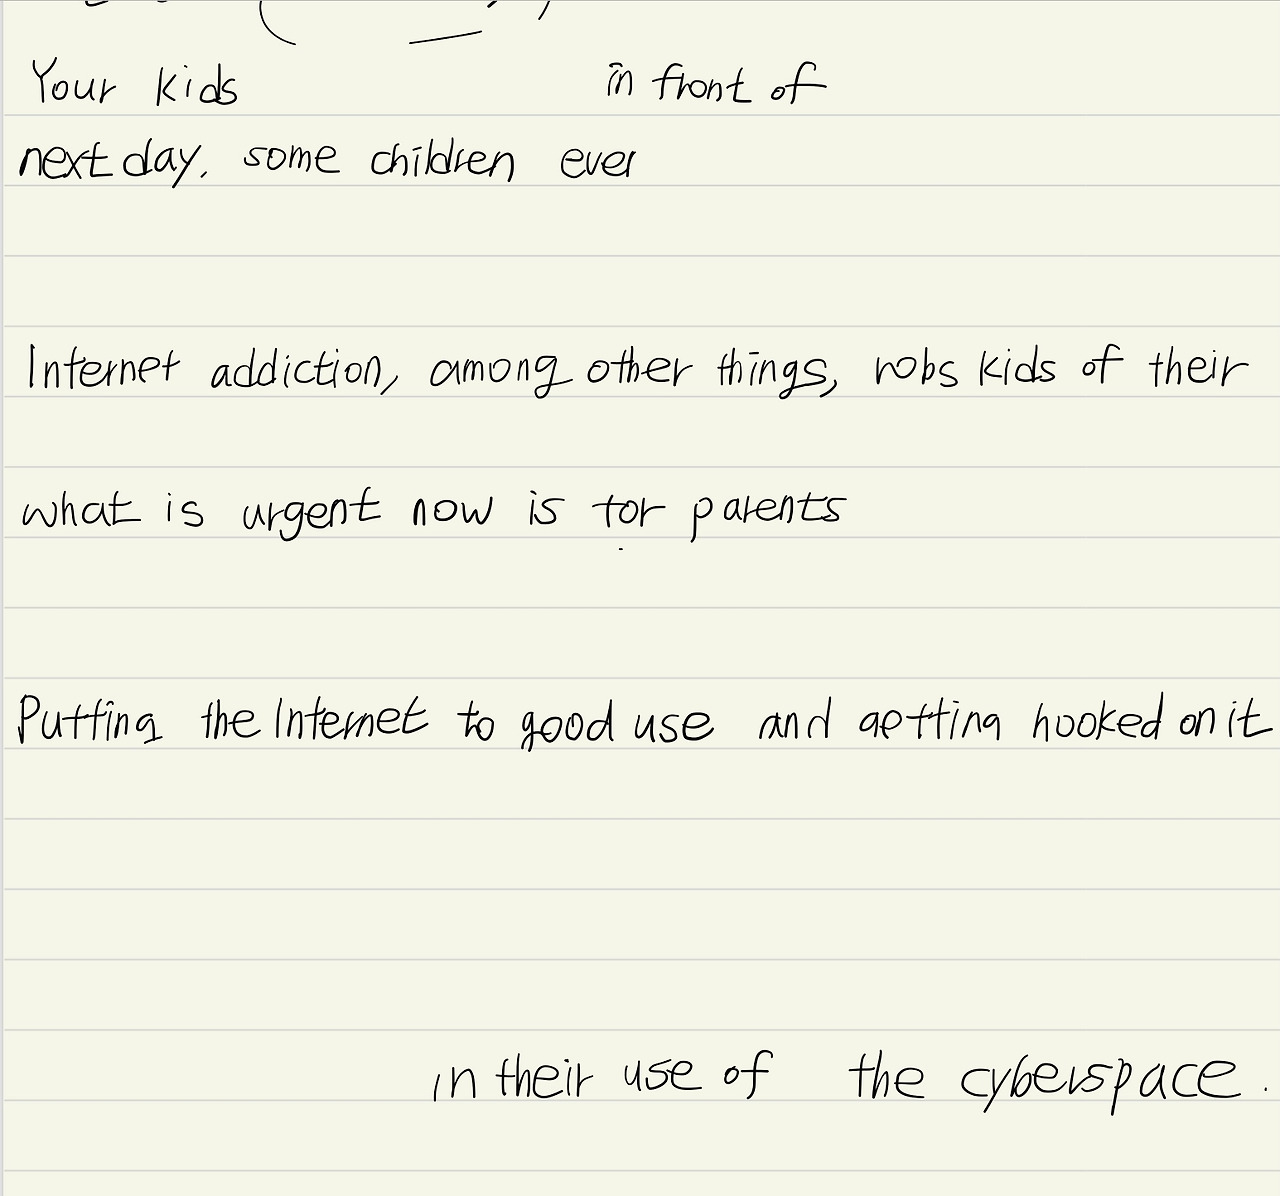 Your kids in front of
next day, some children ever
Internet addiction, among other things, robs kids of their
what is urgent now is for parents
Putting the Internet to good use and getting hooked on it
in their use of the cyberspace.